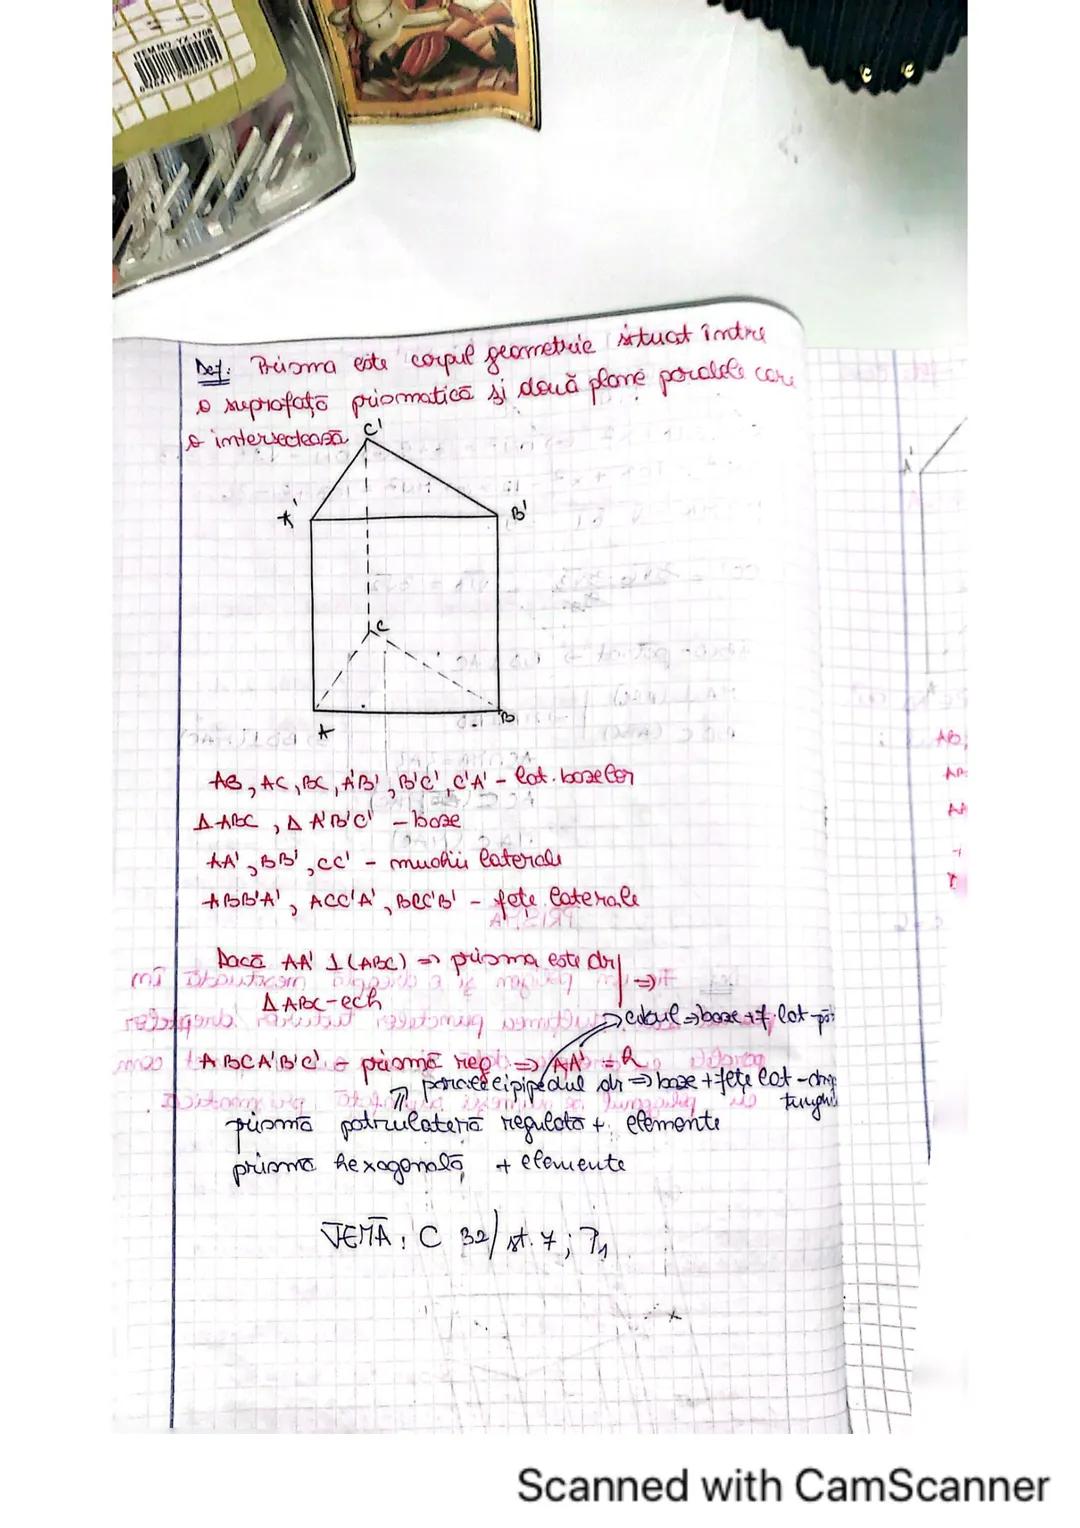 ITEM NO. YX-1708
Def: Prisma este corpul geometric situat între
o suprafață prismatică și două plane paralele care
o intersectează
C'
A'
B'
C
A
B
AB, AC, BC, A'B', B'C', C'A' - lat. bazelor
Δ ABC, Δ A'B'C' - baze
AA', BB', CC' - muchii laterale
ABB'A', ACC'A', BCC'B' - fețe laterale
Dacă AA' ⊥ (ABC) ⇒ prisma este dr | ⇒
Δ ABC - ech
cubul ⇒ baze + f lat - păt
ABCA'B'C' - prismă reg ⇒ AA' = h
paralelipipedul dr ⇒ baze + fețe lat - drep
tunghi
prismă patrulateră regulată + elemente
prismă hexagonală + elemente
TEMĂ: C 32/ st. 7; P1
A'
AB,
Scanned with CamScanner